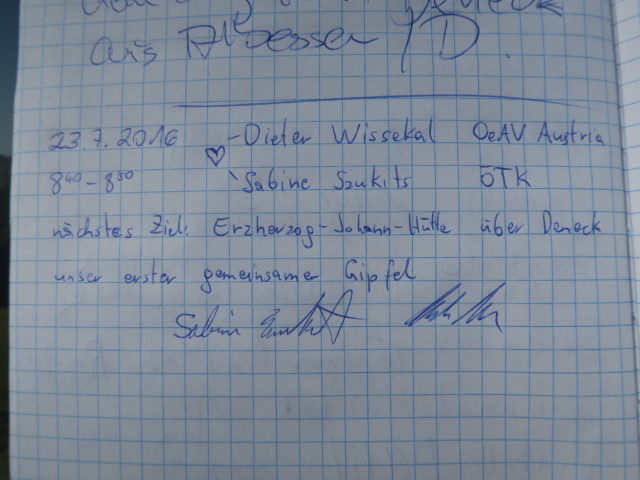 aus
23.7.2016 - Dieter Wissekal OeAV Austria
8⁴⁰ - 8⁵⁰ Sabine Szukits ÖTK
nächstes Ziel: Erzherzog-Johann-Hütte über Deneck
unser erster gemeinsamer Gipfel
Sabine